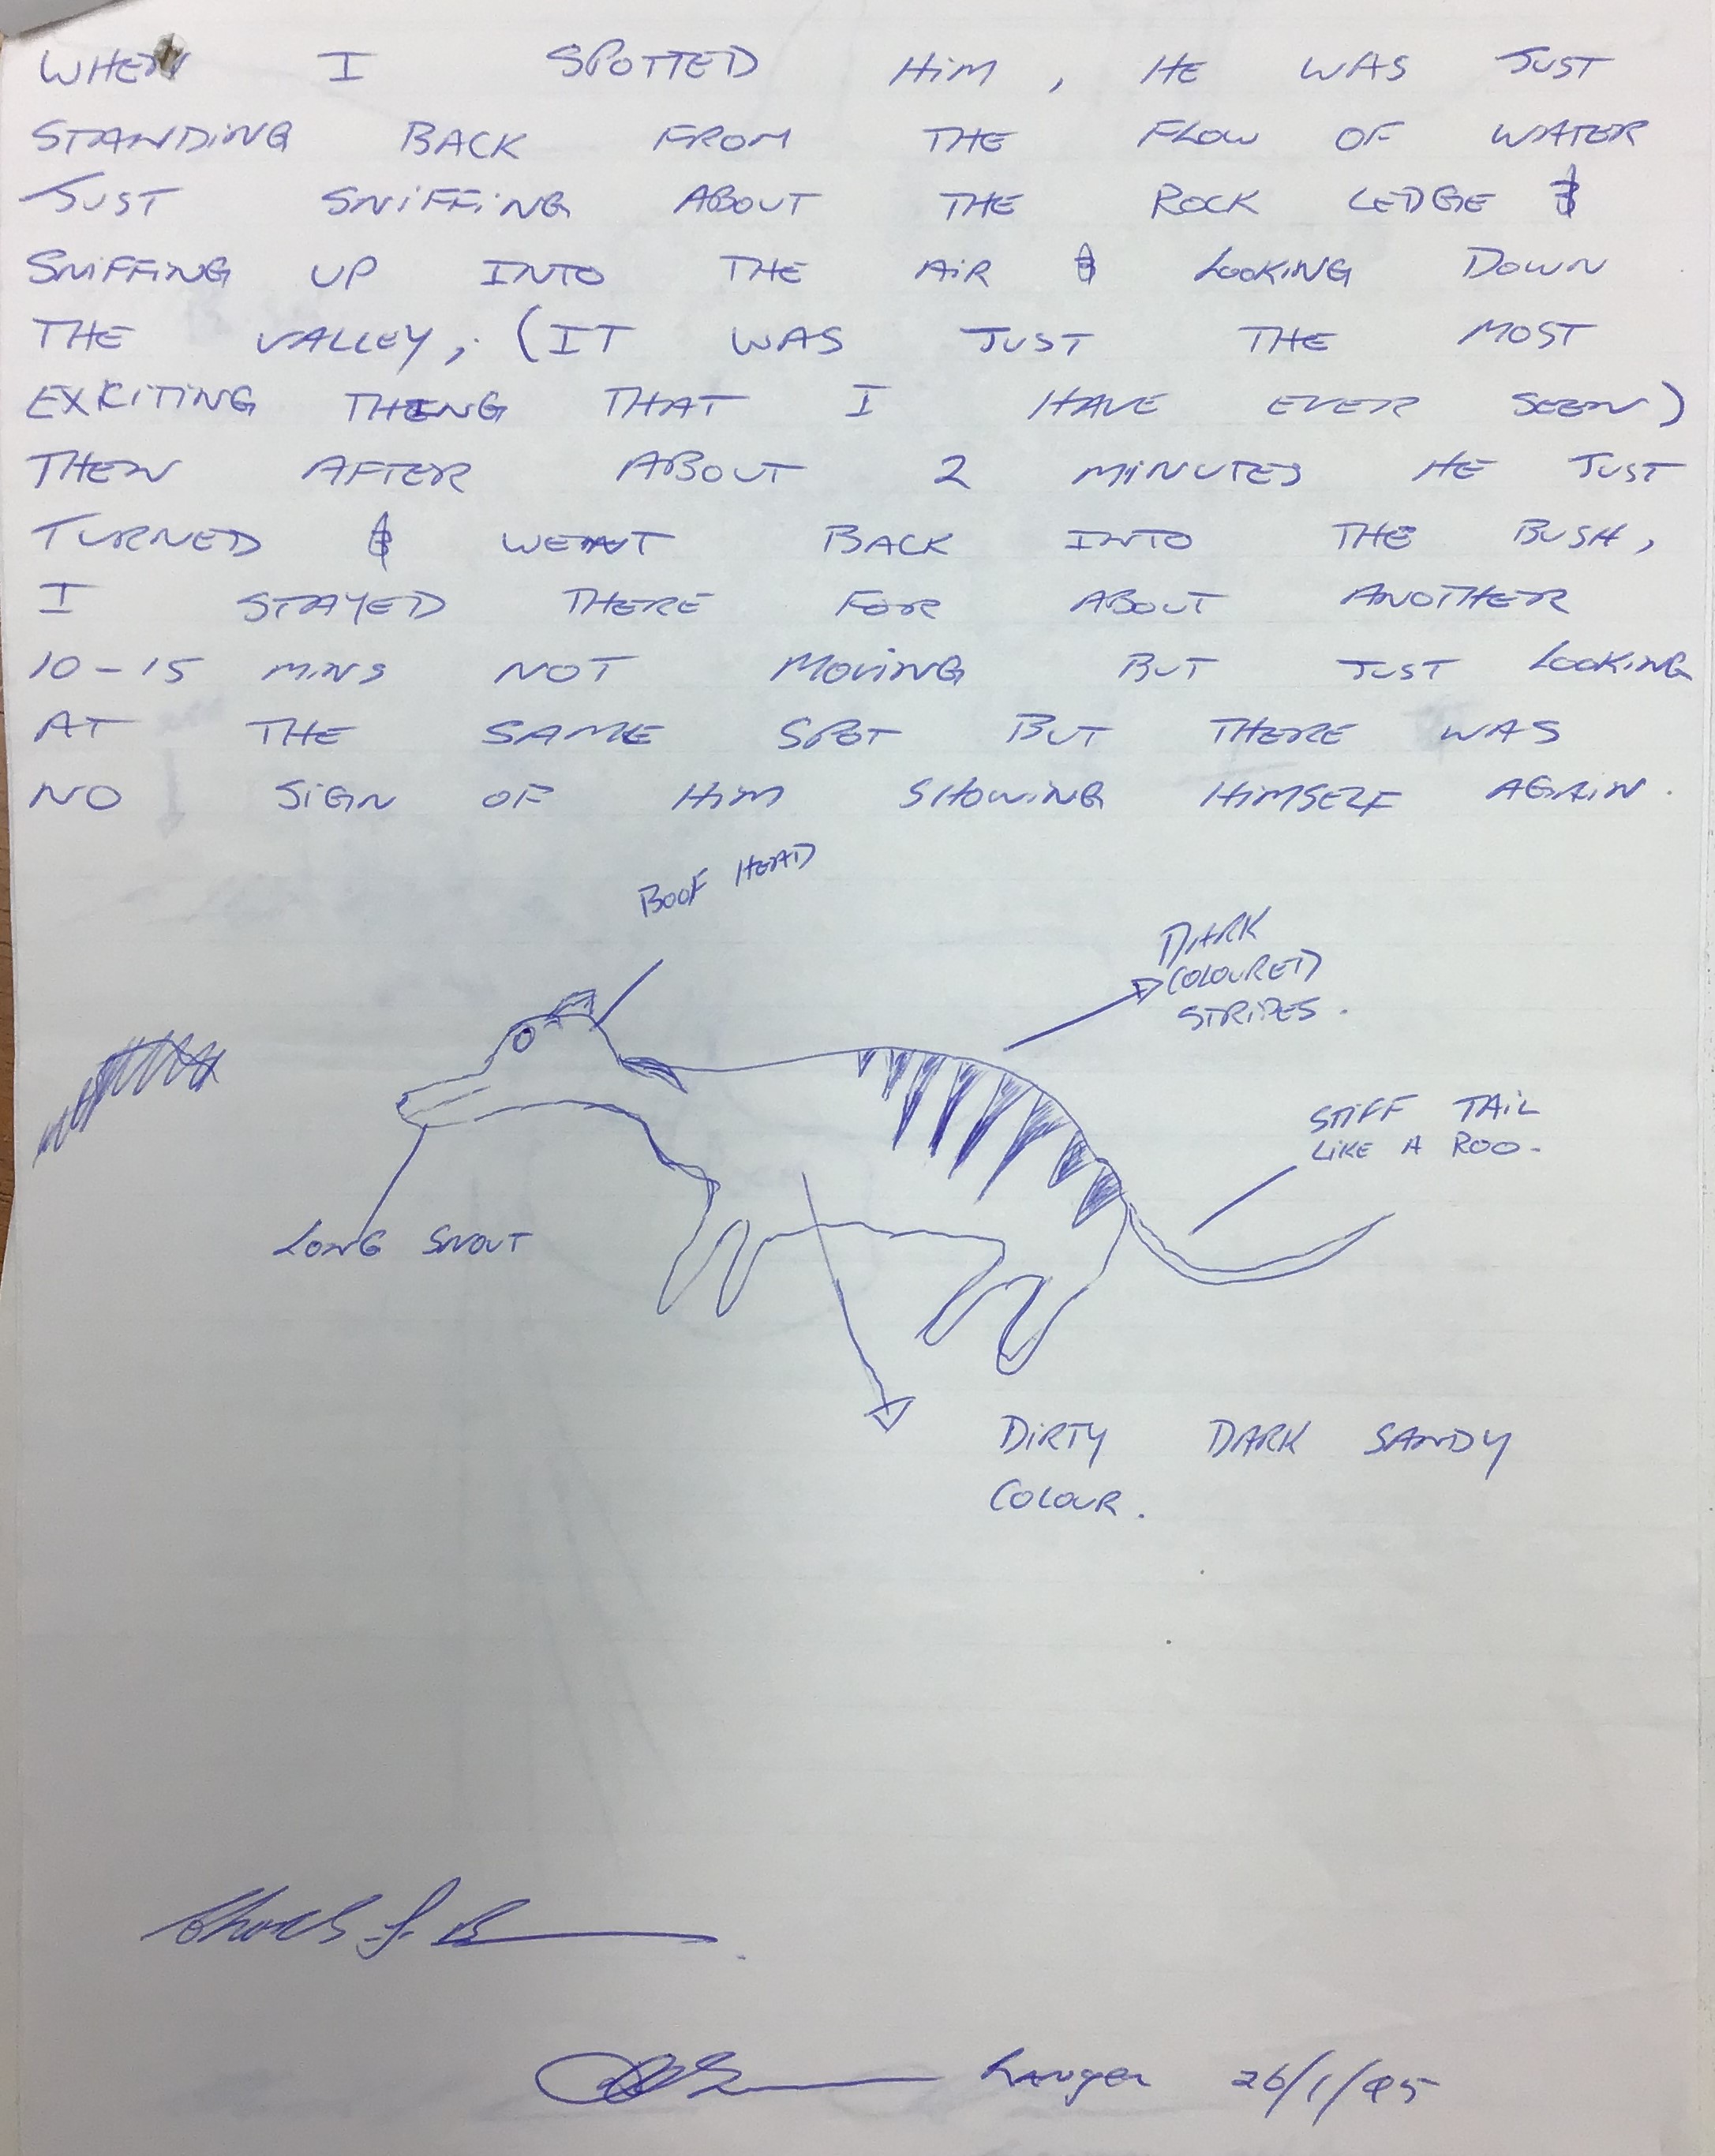 WHEN I SPOTTED HIM, HE WAS JUST
STANDING BACK FROM THE FLOW OF WATER
JUST SNIFFING ABOUT THE ROCK LEDGE &
SNIFFING UP INTO THE AIR & LOOKING DOWN
THE VALLEY, (IT WAS JUST THE MOST
EXCITING THING THAT I HAVE EVER SEEN)
THEN AFTER ABOUT 2 MINUTES HE JUST
TURNED & WENT BACK INTO THE BUSH,
I STAYED THERE FOR ABOUT ANOTHER
10-15 MINS NOT MOVING BUT JUST LOOKING
AT THE SAME SPOT BUT THERE WAS
NO SIGN OF HIM SHOWING HIMSELF AGAIN.
BOOF HEAD
DARK
COLOURED
STRIPES.
STIFF TAIL
LIKE A ROO.
LONG SNOUT
DIRTY DARK SANDY
COLOUR.
Ranger 26/1/95